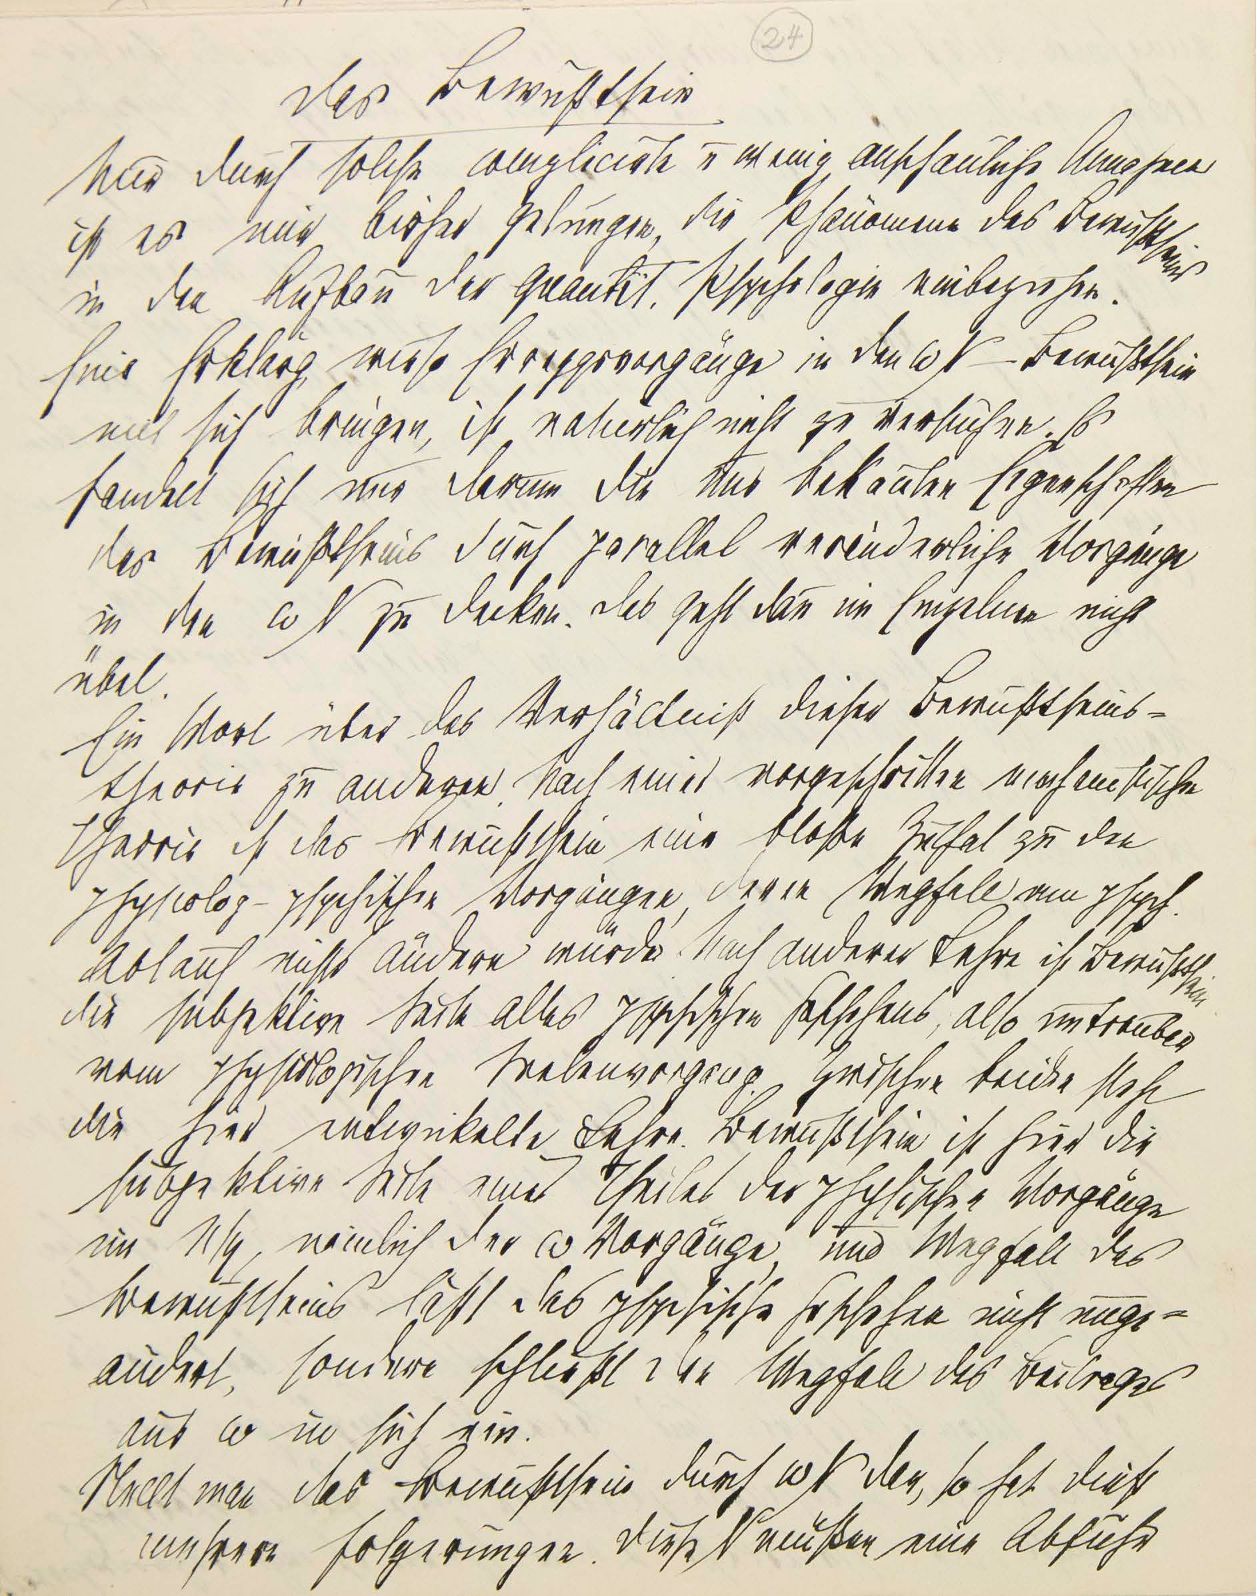 24
Das Bewußtsein
Nur durch solche complicirte u wenig anschauliche Annahmen
ist es mir bisher gelungen, die Phänomene des Bewußtseins
in den Aufbau der quantit. Psychologie einbeziehen.
Eine Erklärg, wieso Erreggsvorgänge in den ω N Bewußtsein
mit sich bringen, ist natürlich nicht zu versuchen. Es
handelt sich nur darum die uns bekannten Eigenschaften
des Bewußtseins durch parallel veränderliche Vorgänge
in den ω N zu decken. Das geht dann im Einzelnen nicht
übel.
Ein Wort über das Verhältniß dieser Bewußtseins-
theorie zu anderen. Nach einer vorgeschritten mechanistischen
Theorie ist das Bewußtsein eine bloße Zuthat zu den
physiolog-psychischen Vorgängen, deren Wegfall am psych.
Ablauf nichts ändern würde. Nach anderer Lehre ist Bewußtsein
die subjektive Seite alles psychischen Geschehens, also untrennbar
vom physiologischen Seelenvorgang. Zwischen beiden steht
die hier entwickelte Lehre. Bewußtsein ist hier die
subjektive Seite eines Theiles der physischen Vorgänge
im Nsy, nämlich der ω Vorgänge, und Wegfall des
Bewußtseins läßt das psychische Geschehen nicht unge-
ändert, sondern schließt den Wegfall des Beitrages
aus ω in sich ein.
Stellt man das Bewußtsein durch ω N dar, so hat dieß
mehrere Folgerungen. Diese N müßen eine Abfuhr